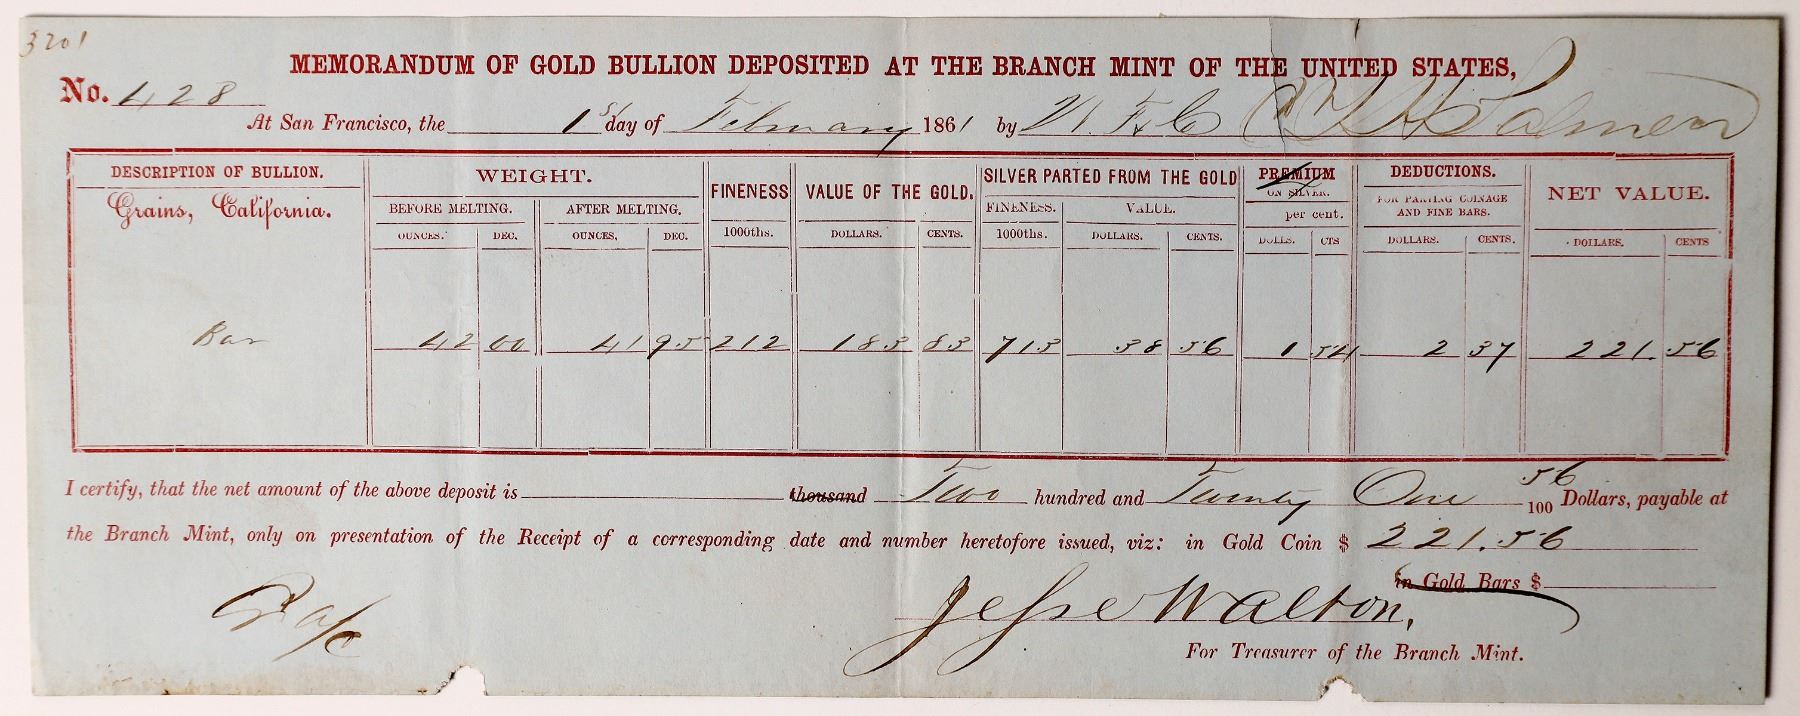 3201
MEMORANDUM OF GOLD BULLION DEPOSITED AT THE BRANCH MINT OF THE UNITED STATES,
No. 428
At San Francisco, the 1st day of February 1861 by W. F & Co Salmon
DESCRIPTION OF BULLION. WEIGHT. FINENESS VALUE OF THE GOLD. SILVER PARTED FROM THE GOLD PREMIUM ON SILVER. DEDUCTIONS. NET VALUE.
Grains, California. BEFORE MELTING. AFTER MELTING. FINENESS. VALUE. per cent. FOR PARTING COINAGE AND FINE BARS.
OUNCES. DEC. OUNCES. DEC. 1000ths. DOLLARS. CENTS. 1000ths. DOLLARS. CENTS. DOLLS. CTS DOLLARS. CENTS. DOLLARS. CENTS
Bar 42 00 41 95 212 183 83 713 38 56 1 54 2 37 221. 56
I certify, that the net amount of the above deposit is thousand Two hundred and Twenty One 56/100 Dollars, payable at
the Branch Mint, only on presentation of the Receipt of a corresponding date and number heretofore issued, viz: in Gold Coin $ 221.56
in Gold Bars $
Jesse Walton,
For Treasurer of the Branch Mint.